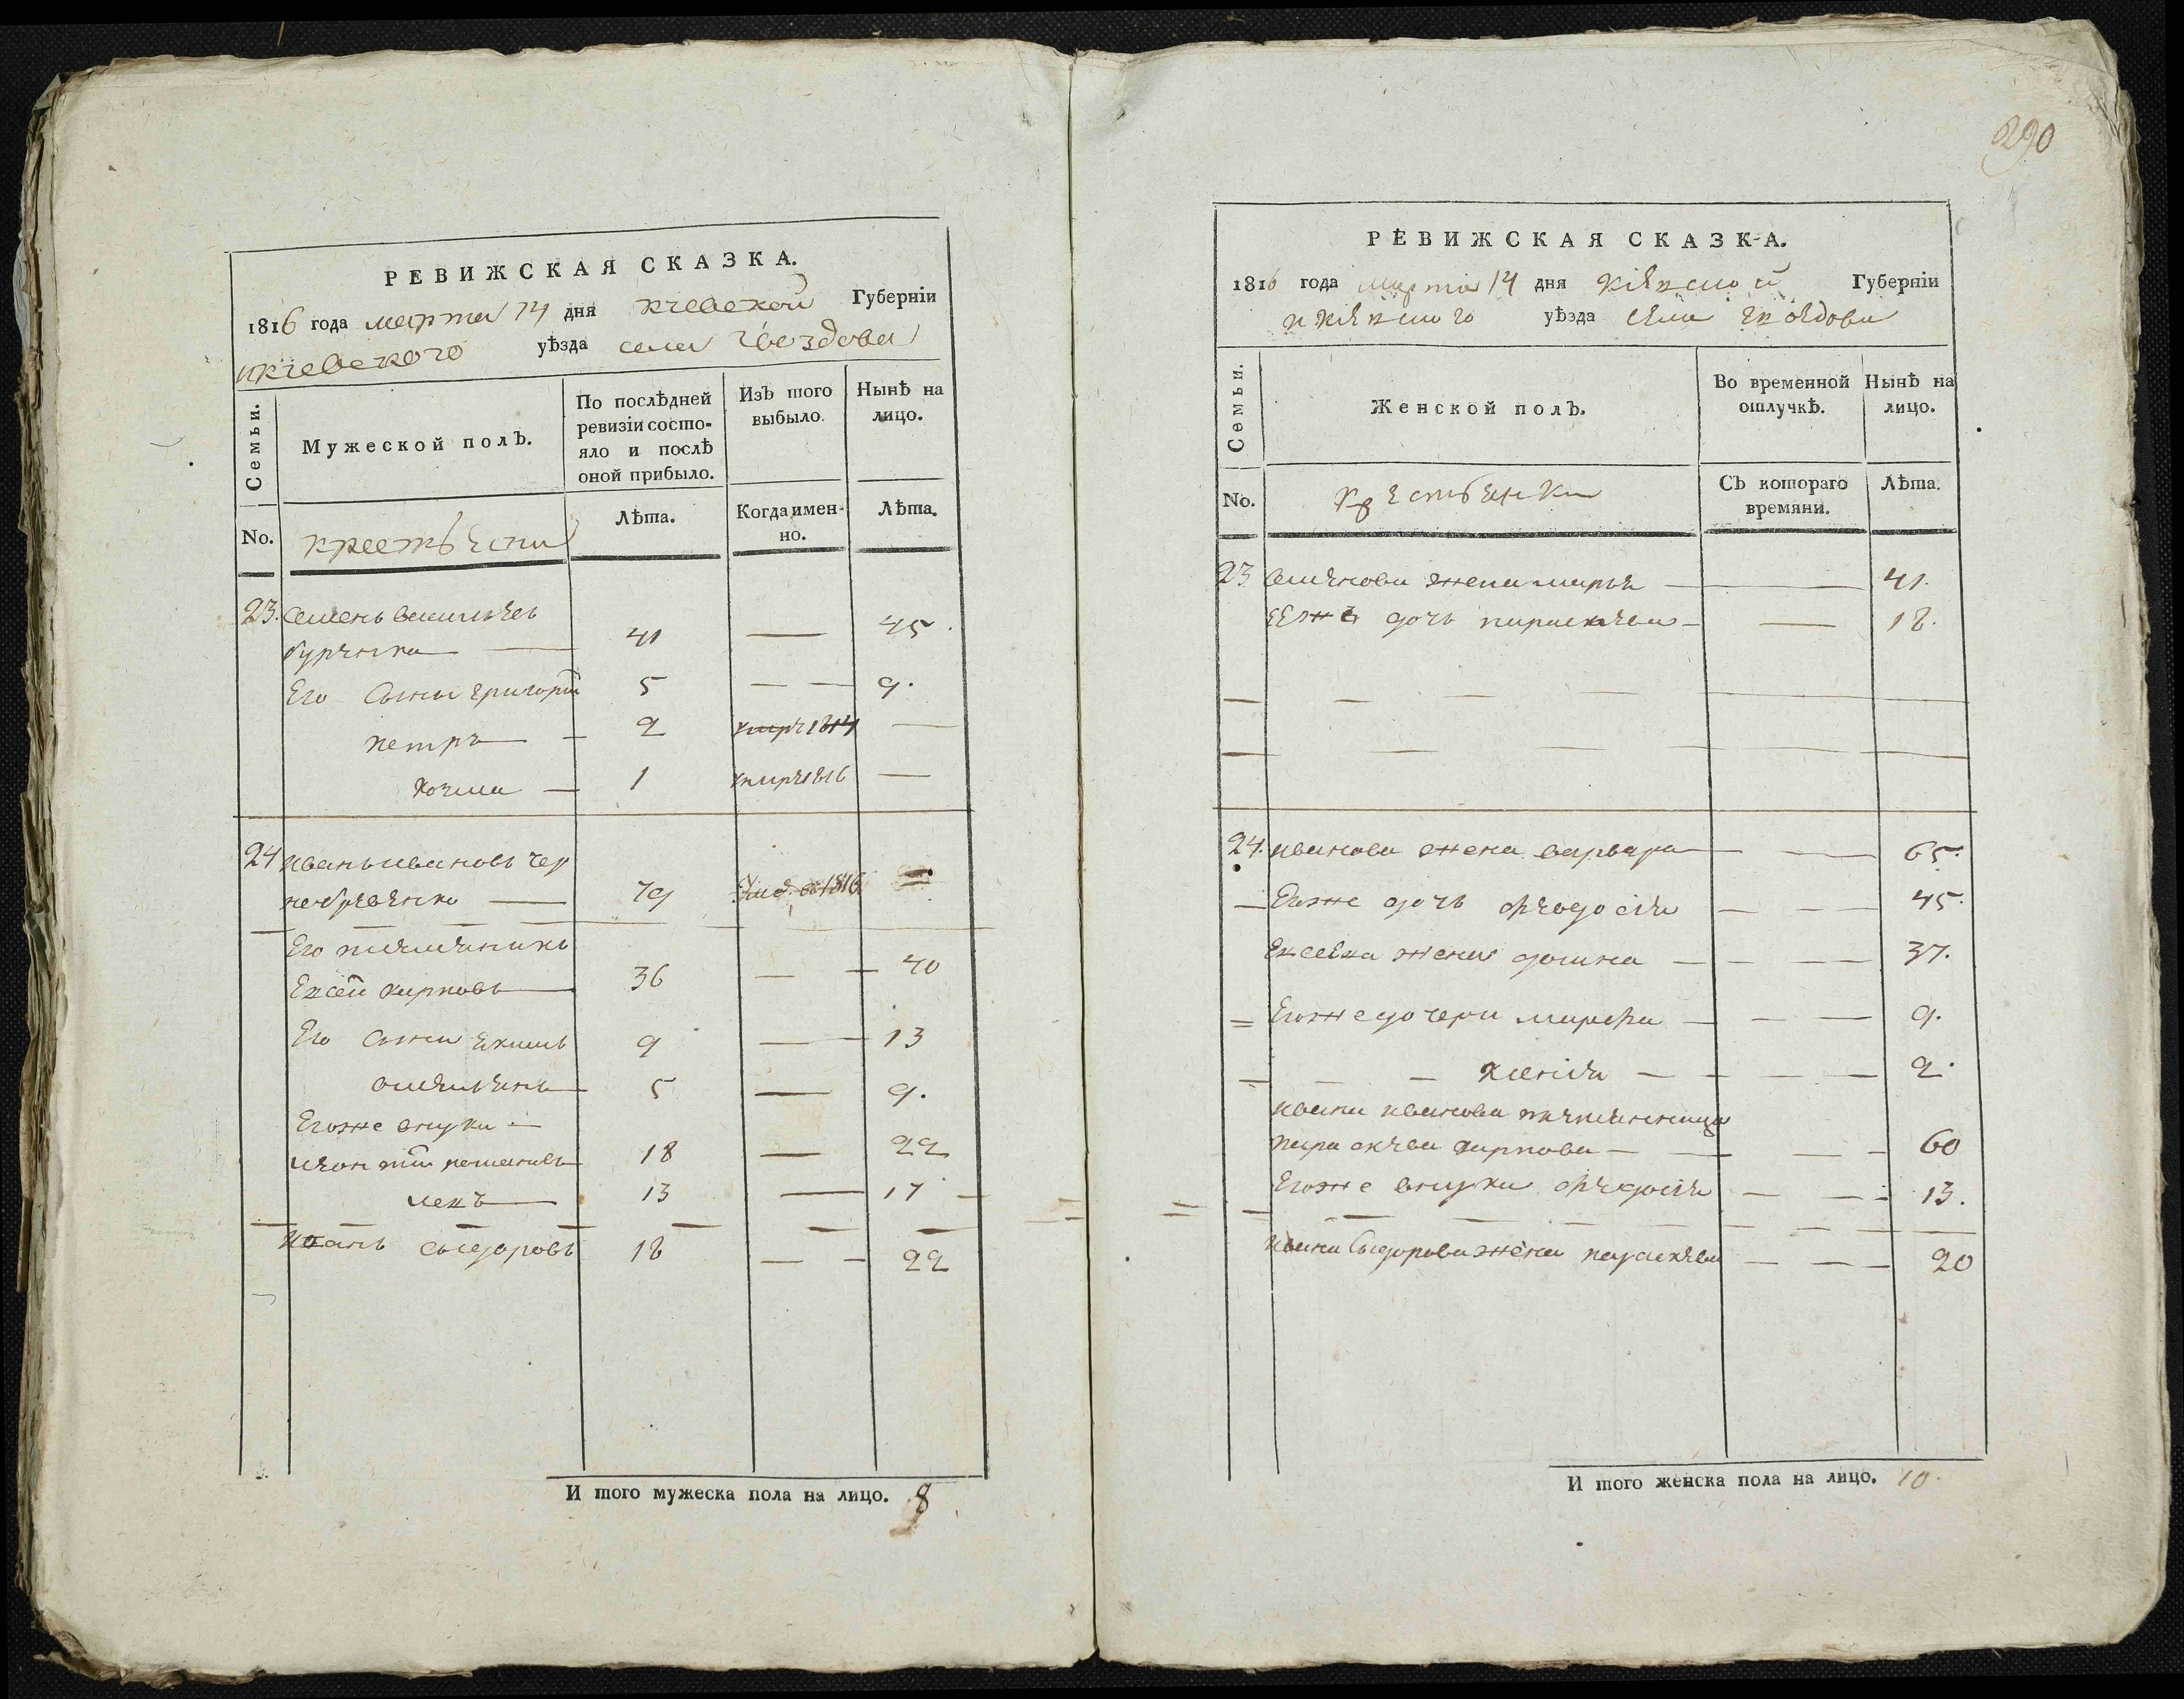 РЕВИЖСКАЯ СКАЗКА.
1816 года марта 14 дня киевской Губерніи
и киевского уѣзда села Гвоздова
Семьи. Мужеской полъ. По послѣдней ревизіи состояло и послѣ оной прибыло. Изъ того выбыло. Нынѣ на лицо.
No. Лѣта. Когда именно. Лѣта.
23. Семенъ
41 — 45.
Его Сыны григорій 5 — — 9.
петръ — 2 1814 —
козма — 1 1816 —
24 иванъ ивановъ чер
79 1816
Его племѣникъ
Евсей карповъ 36 — — 40
Его Сыни екимъ 9 — 13
омелянъ 5 — 9.
Егоже внуки —
18 — 22
13 — 17 —
иванъ сыдоровъ 18 — — 22
И того мужеска пола на лицо. 8
290
РЕВИЖСКАЯ СКАЗКА.
1816 года марта 14 дня киевской Губерніи
и киевского уѣзда села гвоздова
Семьи. Женской полъ. Во временной отлучкѣ. Нынѣ на лицо.
No. Съ котораго времяни. Лѣта.
23 Семенова жена марья — 41.
Егоже дочь параскева — — 18.
24. иванова жена варвара — — 65.
— Егоже дочь феодосія — — — 45.
Евсеева жена домна — — — 37.
= Егоже дочери марфа — — — 9.
— — — ксенія — — — — 2.
ивана иванова племянница
параскева карпова — — — 60
Егоже внука феодосія — — 13.
ивана Сыдорова жена параскева — — — 20
И того женска пола на лицо. 10.